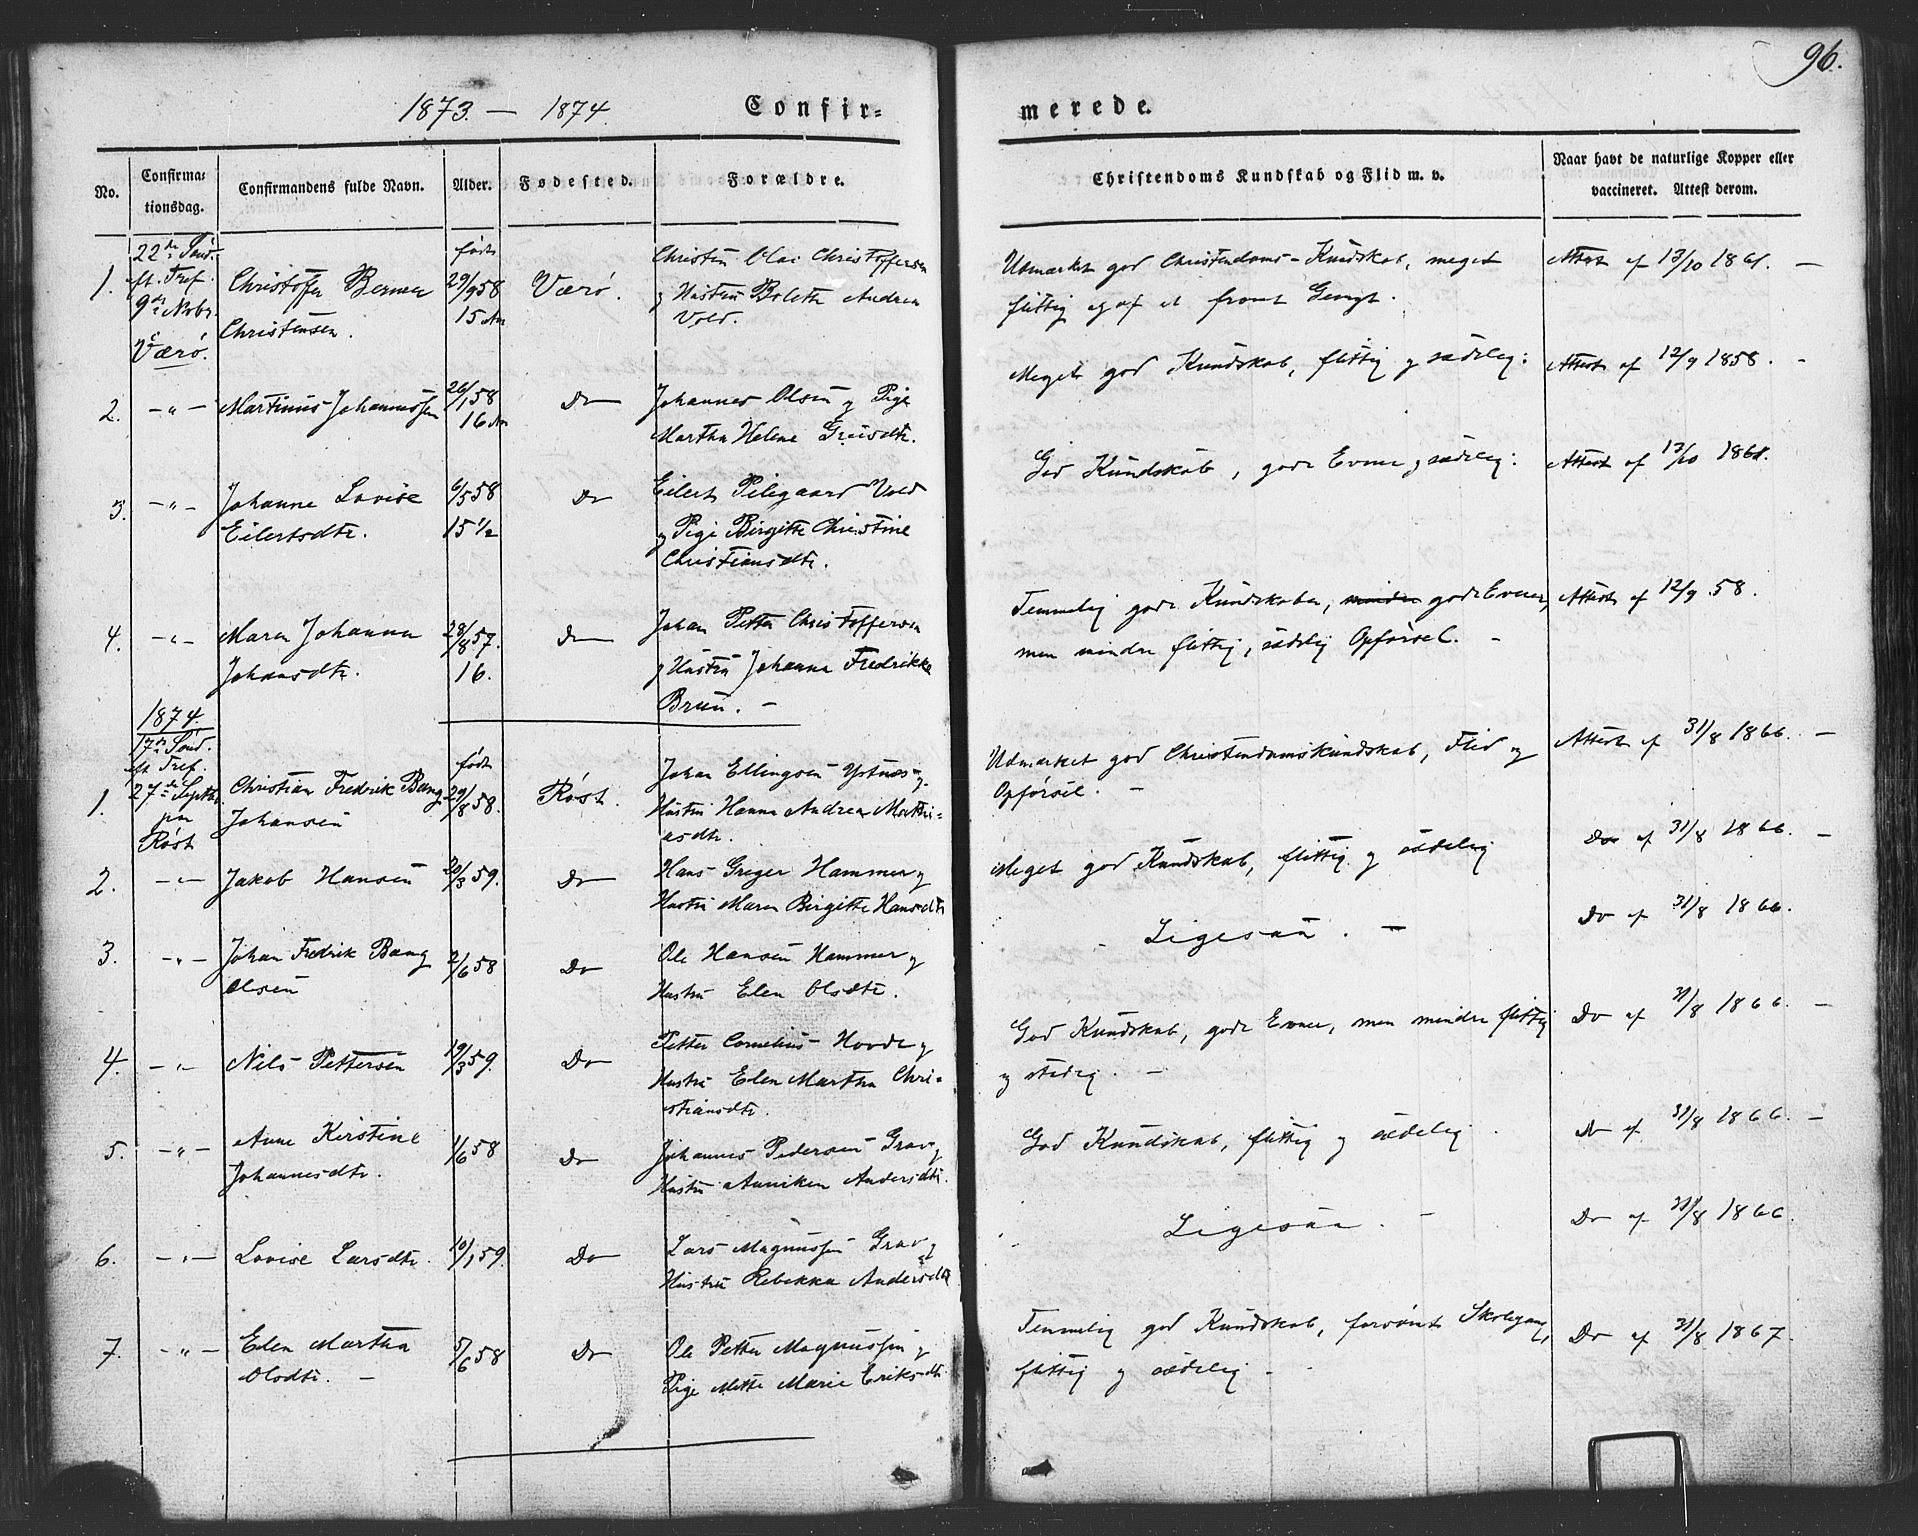 96.
1873. — 1874. Confir=
merede.
No.
Confirma=
tionsdag.
Confirmandens fulde Navn.
Alder.
Fødested.
Forældre.
Christendoms Kundskab og Flid m. v.
Naar havt de naturlige Kopper eller
vaccineret. Attest derom.
22de Sønd.
ft. Tref.
9de Novbr.
i
Værø.
1. Christofer Berner
Christensen.
født
29/9 58
15 Aar
Værø.
Christen Olai Christoffersen
og Hustru Bolette Andrea
Vold.
Udmærket god Christendoms-Kundskab, meget
flittig og af et fromt Gemyt.
Attest af 13/10 1861. —
2. —"— Martinus Johannessen
26/1 58
16 Aar
Do
Johannes Olsen og Pige
Martha Helene Greisdtr.
Meget god Kundskab, flittig og sædelig:
Attest af 12/9 1858. —
3. —"— Johanne Lovise
Eilertsdtr.
6/5 58
15 1/2
Do
Eilert Pilegaard Vold
og Pige Birgitte Christine
Christiansdtr.
God Kundskab, gode Evner, sædelig:
Attest af 13/10 1861.
4. —"— Maren Johanna
Johansdtr.
28/8 57.
16.
Do
Johan Petter Christoffersen
og Hustru Johanna Fredrikke
Brun. —
Temmelig gode Kundskaber, mindre gode Evner,
men mindre flittig, sædelig Opførsel. —
Attest af 12/9 58.
1874.
17de Sønd.
ft. Tref.
27de Septbr.
paa
Røst
1. Christian Fredrik Bang
Johansen
født
29/8 58.
Røst.
Johan Ellingsen Ystnes og
Hustru Hanna Andrea Mathi=
asdtr.
Udmærket god Christendomskundskab, Flid og
Opførsel. —
Attest af 31/8 1866. —
2. —"— Jakob Hansen
20/3 59.
Do
Hans Greger Hammer og
Hustru Maren Birgitte Hansdtr
Meget god Kundskab, flittig og sædelig
Do af 31/8 1866. —
3. —"— Johan Fredrik Bang
Olsen
2/6 58
Do
Ole Hansen Hammer og
Hustru Elen Olsdtr.
— Ligesaa. —
Do af 31/8 1866.
4. —"— Nils Pettersen
19/3 59.
Do
Petter Cornelius Hovde og
Hustru Elen Martha Chri=
stiansdtr.
God Kundskab, gode Evner, men mindre flittig
og stadig. —
Do af 31/8 1866. —
5. —"— Anne Kirstine
Johannesdtr.
1/6 58
Do
Johannes Pedersen Grav og
Hustru Anniken Andersdtr.
God Kundskab, flittig og sædelig.
Do af 31/8 1866. —
6. —"— Lovise Larsdtr.
10/1 59.
Do
Lars Magnussen Grav og
Hustru Rebekka Andersdtr
Ligesaa. —
Do af 31/8 1866.
7. —"— Elen Martha
Olsdtr. —
5/6 58
Do
Ole Petter Magnussen og
Pige Mette Marie Eriksdtr
Temmelig god Kundskab, forsømt Skolegang,
flittig og sædelig —
Do af 31/8 1867.